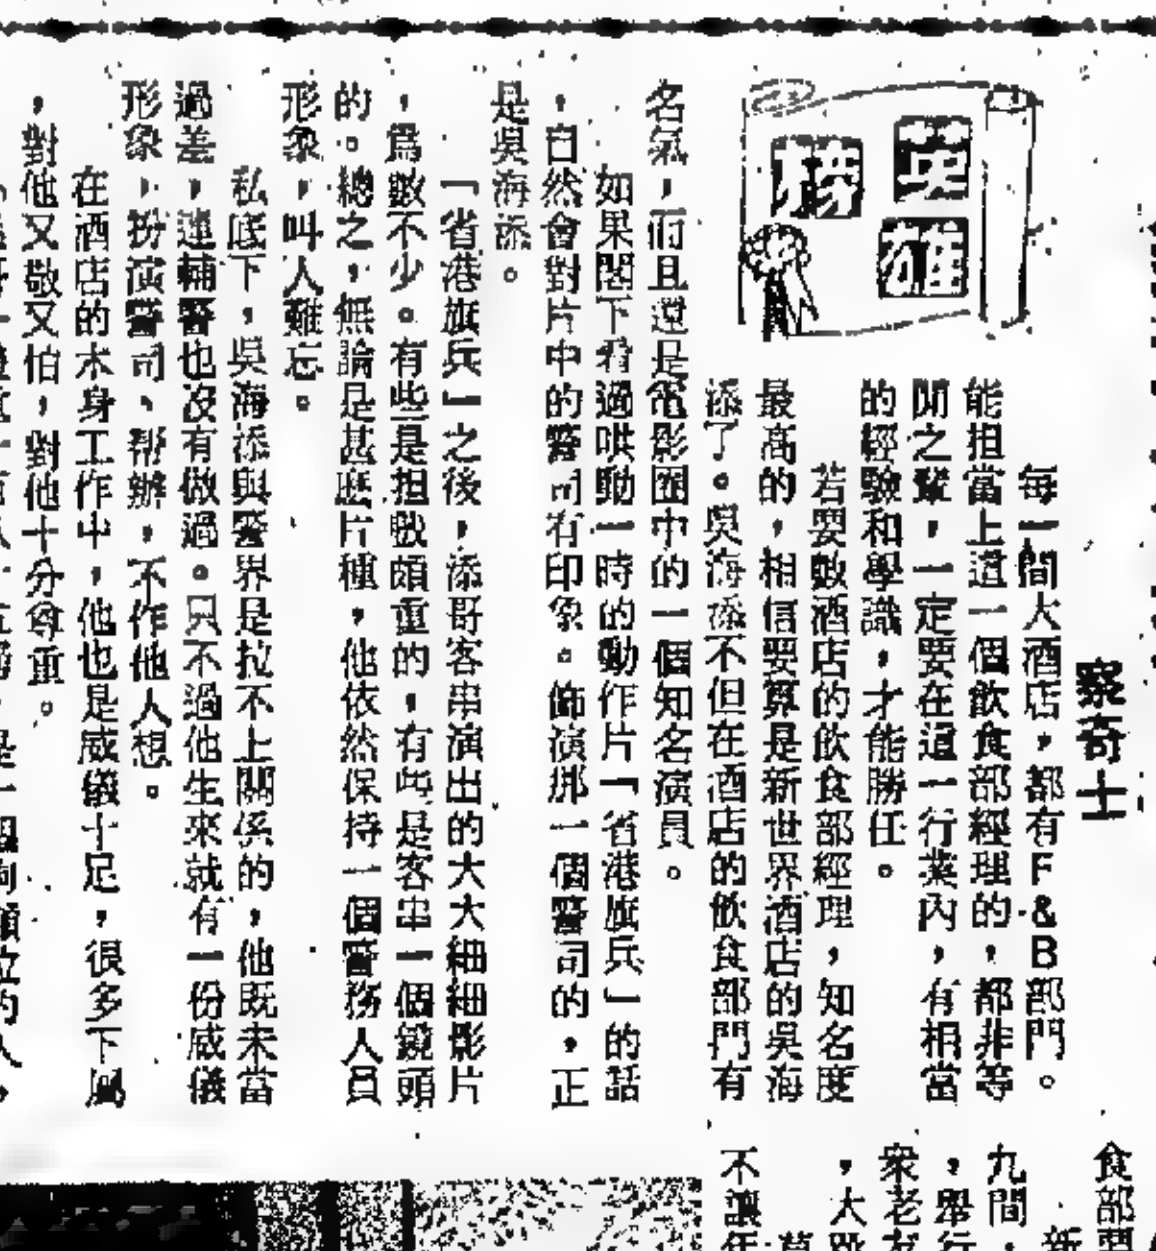 英雄榜
察奇士
每一間大酒店，都有F&B部門。
能担當上這一個飲食部經理的，都非等
閒之輩，一定要在這一行業內，有相當
的經驗和學識，才能勝任。
若要數酒店的飲食部經理，知名度
最高的，相信要算是新世界酒店的吳海
添了。吳海添不但在酒店的飲食部門有
名氣，而且還是電影圈中的一個知名演員。
如果閣下看過哄動一時的動作片「省港旗兵」的話
，自然會對片中的警司有印象。飾演那一個警司的，正
是吳海添。
「省港旗兵」之後，添哥客串演出的大大細細影片
，爲數不少。有些是担戲頗重的，有些是客串一個鏡頭
的。總之，無論是甚麽片種，他依然保持一個警務人員
形象，叫人難忘。
私底下，吳海添與警界是拉不上關係的，他既未當
過差，連輔警也沒有做過。只不過他生來就有一份威儀
形象，扮演警司、帮辦，不作他人想。
在酒店的本身工作中，他也是威儀十足，很多下屬
，對他又敬又怕，對他十分尊重。
食部
九間
，舉行
衆老友
，大
不讓年